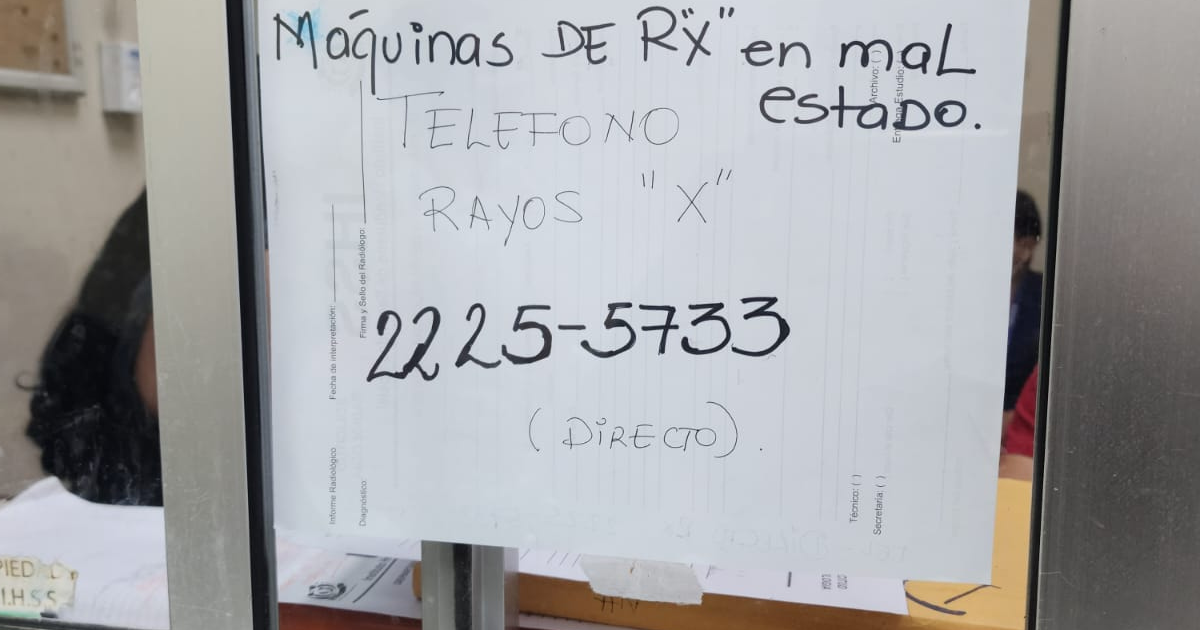 Máquinas DE R"X" en maL
estaDO.
TELEFONO
RAYOS "X"
2225-5733
(DiRECTO).
Informe Radiológico
Fecha de interpretación:
Diagnóstico:
Firma y Sello del Radiólogo:
Técnico: ( )
Secretaria: ( )
Archivo: ( )
Estudio:
I.H.S.S